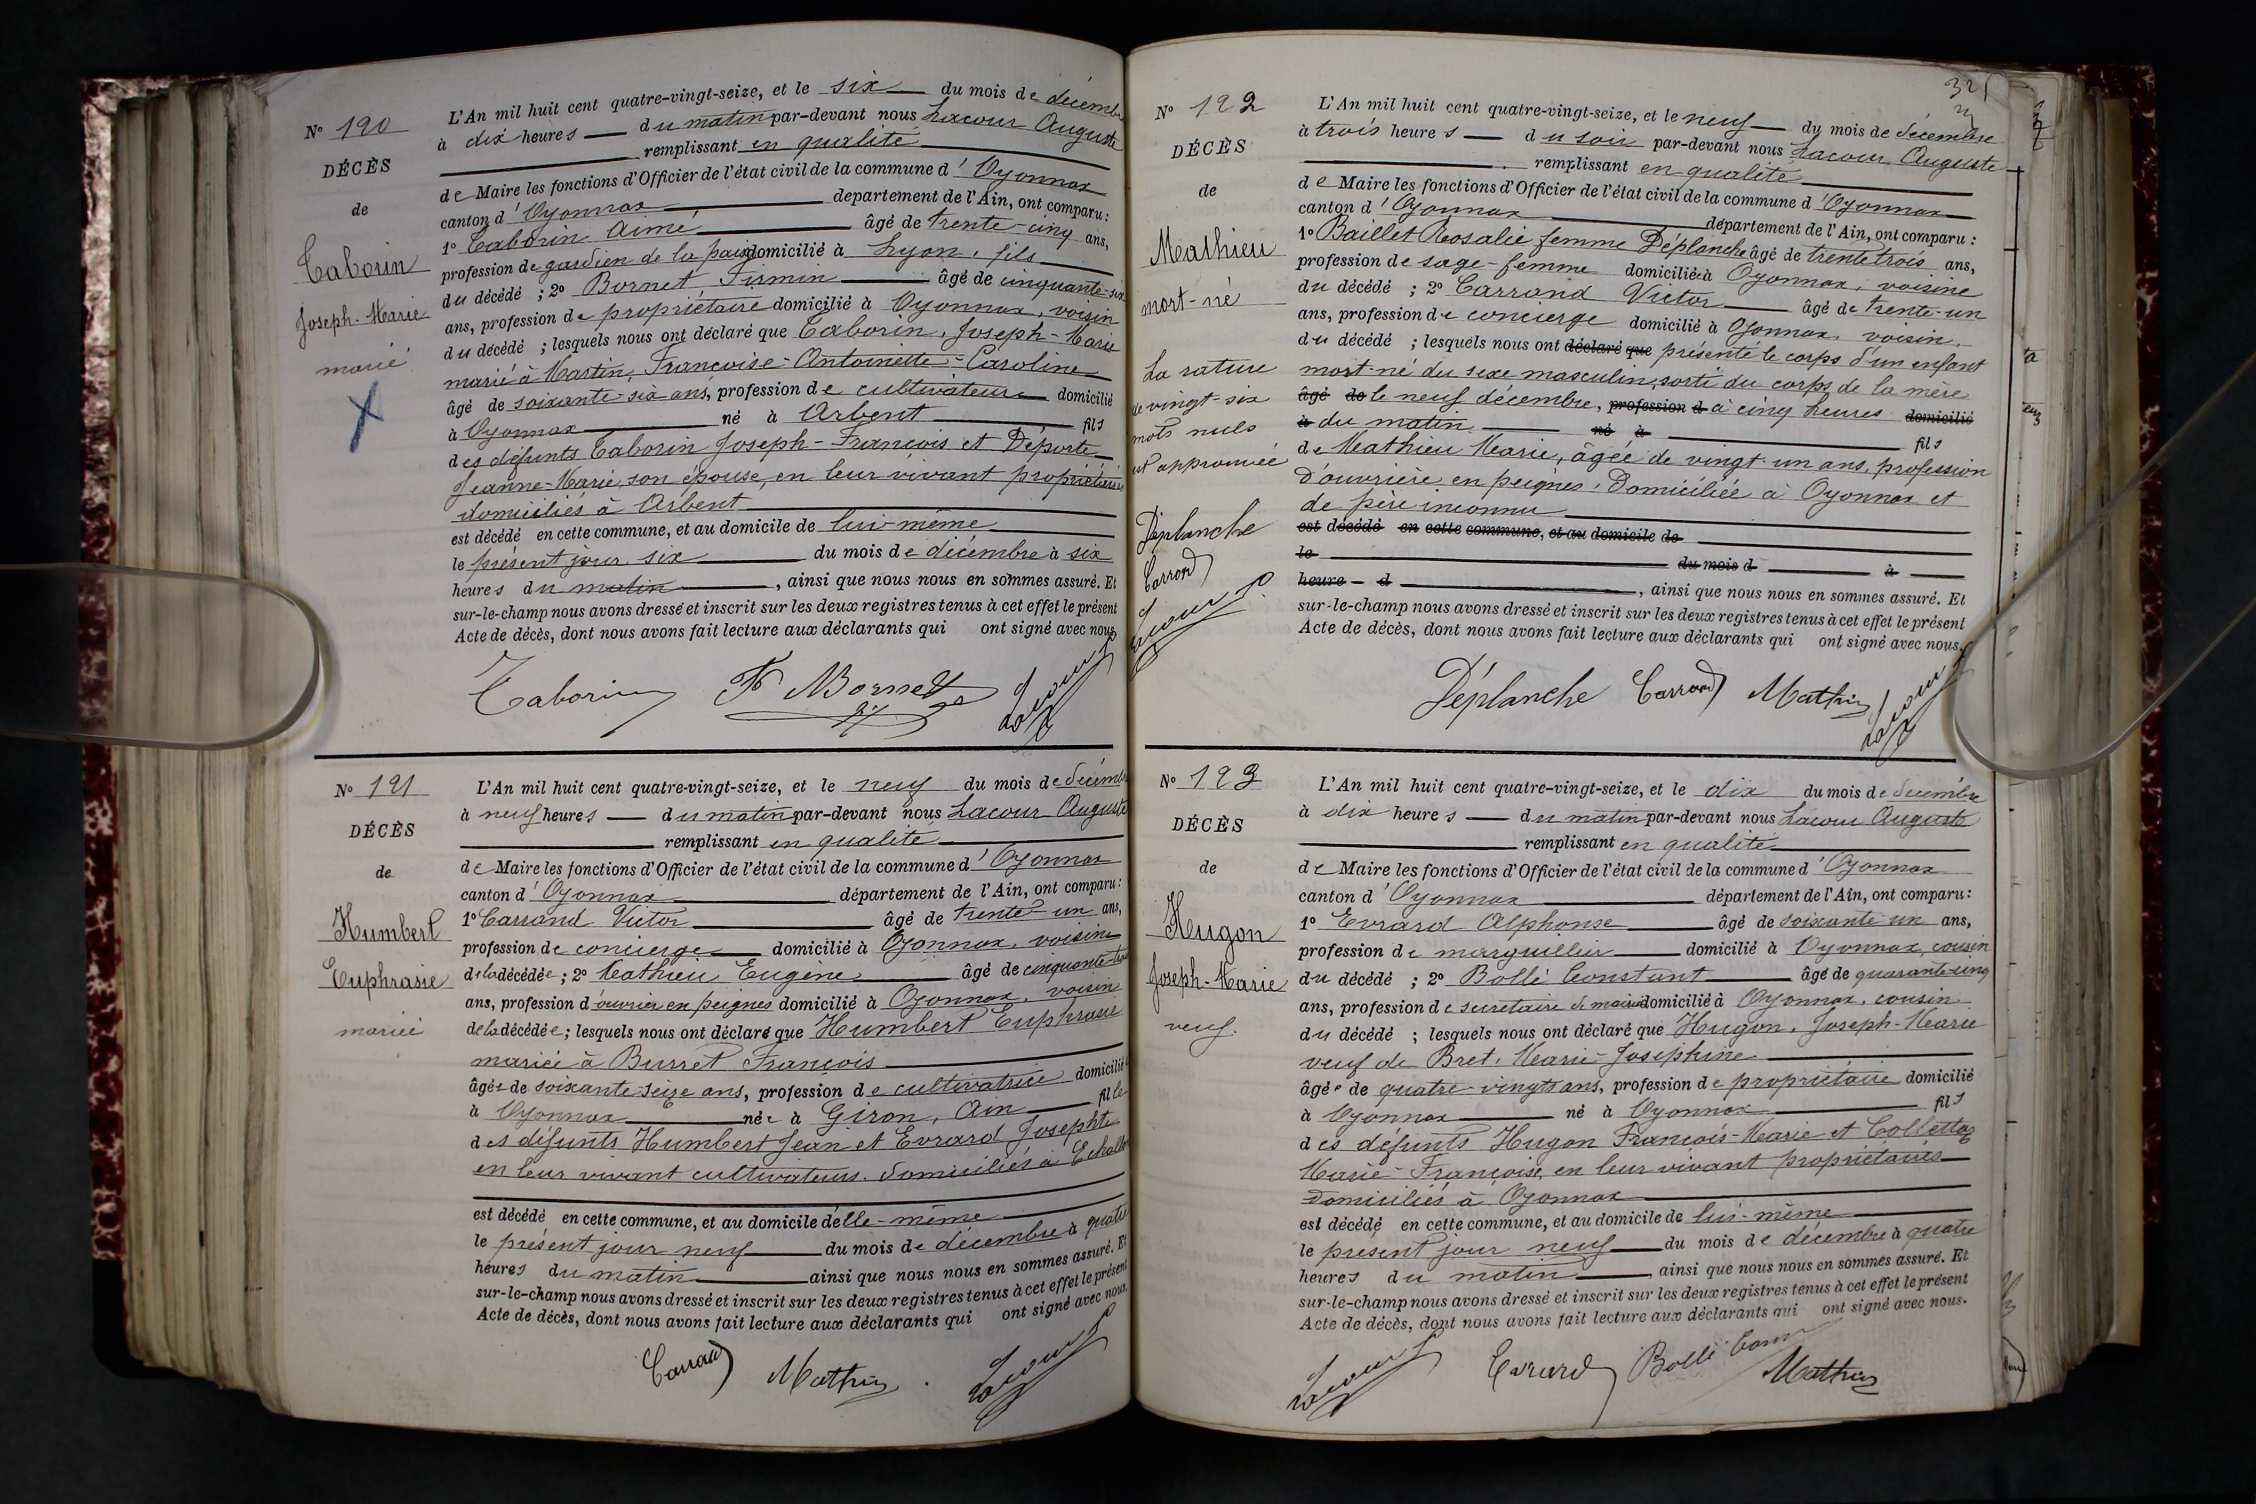 N° 190
DÉCÈS
de
Taborin
Joseph-Marie
marié
L'An mil huit cent quatre-vingt-seize, et le six du mois de décembre
à dix heures du matin par-devant nous Lacour Auguste
remplissant en qualité
de Maire les fonctions d'Officier de l'état civil de la commune d'Oyonnax
canton d'Oyonnax département de l'Ain, ont comparu :
1° Taborin Aimé âgé de trente-cinq ans,
profession de gardien de la paix domicilié à Lyon, fils
du décédé ; 2° Bornet Firmin âgé de cinquante-six
ans, profession de propriétaire domicilié à Oyonnax, voisin
du décédé ; lesquels nous ont déclaré que Taborin, Joseph-Marie
marié à Martin, Françoise-Antoinette-Caroline
âgé de soixante-six ans, profession de cultivateur domicilié
à Oyonnax né à Arbent fils
des défunts Taborin Joseph-François et Déporte
Jeanne-Marie, son épouse, en leur vivant propriétaires
domiciliés à Arbent
est décédé en cette commune, et au domicile de lui-même
le présent jour six du mois de décembre à six
heures du matin, ainsi que nous nous en sommes assuré. Et
sur-le-champ nous avons dressé et inscrit sur les deux registres tenus à cet effet le présent
Acte de décès, dont nous avons fait lecture aux déclarants qui ont signé avec nous.
Taborin F. Bornet Lacour
N° 191
DÉCÈS
de
Humbert
Euphrasie
mariée
L'An mil huit cent quatre-vingt-seize, et le neuf du mois de décembre
à neuf heures du matin par-devant nous Lacour Auguste
remplissant en qualité
de Maire les fonctions d'Officier de l'état civil de la commune d'Oyonnax
canton d'Oyonnax département de l'Ain, ont comparu :
1° Carrand Victor âgé de trente-un ans,
profession de concierge domicilié à Oyonnax, voisin
de la décédée ; 2° Mathieu Eugène âgé de cinquante-trois
ans, profession d'ouvrier en peignes domicilié à Oyonnax, voisin
de la décédée ; lesquels nous ont déclaré que Humbert Euphrasie
mariée à Burret François
âgée de soixante-seize ans, profession de cultivatrice domicilié
à Oyonnax née à Giron, Ain fille
des défunts Humbert Jean et Evrard Josephte
en leur vivant cultivateurs, domiciliés à Echallon
est décédé en cette commune, et au domicile d'elle-même
le présent jour neuf du mois de décembre à quatre
heures du matin ainsi que nous nous en sommes assuré. Et
sur-le-champ nous avons dressé et inscrit sur les deux registres tenus à cet effet le présent
Acte de décès, dont nous avons fait lecture aux déclarants qui ont signé avec nous.
Carrand Mathieu Lacour
N° 192
DÉCÈS
de
Mathieu
mort-né
La rature
de vingt-six
mots nuls
est approuvée
Déplanche
Carrand
Lacour
L'An mil huit cent quatre-vingt-seize, et le neuf du mois de décembre
à trois heures du soir par-devant nous Lacour Auguste
remplissant en qualité
de Maire les fonctions d'Officier de l'état civil de la commune d'Oyonnax
canton d'Oyonnax département de l'Ain, ont comparu :
1° Baillet Rosalie femme Déplanche âgé de trente trois ans,
profession de sage-femme domiciliée à Oyonnax, voisine
du décédé ; 2° Carrand Victor âgé de trente-un
ans, profession de concierge domicilié à Oyonnax, voisin,
du décédé ; lesquels nous ont déclaré que présenté le corps d'un enfant
mort-né du sexe masculin, sorti du corps de la mère
âgé de le neuf décembre, profession d à cinq heures domicilié
à du matin né à fils
de Mathieu Marie, âgée de vingt-un ans, profession
d'ouvrière en peignes, domiciliée à Oyonnax et
de père inconnu
est décédé en cette commune, et au domicile de
le du mois d à
heure d, ainsi que nous nous en sommes assuré. Et
sur-le-champ nous avons dressé et inscrit sur les deux registres tenus à cet effet le présent
Acte de décès, dont nous avons fait lecture aux déclarants qui ont signé avec nous.
Déplanche Carrand Mathieu Lacour
N° 193
DÉCÈS
de
Hugon
Joseph-Marie
veuf.
L'An mil huit cent quatre-vingt-seize, et le dix du mois de décembre
à dix heures du matin par-devant nous Lacour Auguste
remplissant en qualité
de Maire les fonctions d'Officier de l'état civil de la commune d'Oyonnax
canton d'Oyonnax département de l'Ain, ont comparu :
1° Evrard Alphonse âgé de soixante un ans,
profession de marguillier domicilié à Oyonnax, cousin
du décédé ; 2° Bollé Constant âgé de quarante-cinq
ans, profession de secrétaire de mairie domicilié à Oyonnax, cousin
du décédé ; lesquels nous ont déclaré que Hugon, Joseph-Marie
veuf de Bret, Marie-Joséphine
âgé de quatre-vingts ans, profession de propriétaire domicilié
à Oyonnax né à Oyonnax fils
des défunts Hugon François-Marie et Collettaz
Marie-Françoise, en leur vivant propriétaires
domiciliés à Oyonnax
est décédé en cette commune, et au domicile de lui-même
le présent jour neuf du mois de décembre à quatre
heures du matin, ainsi que nous nous en sommes assuré. Et
sur-le-champ nous avons dressé et inscrit sur les deux registres tenus à cet effet le présent
Acte de décès, dont nous avons fait lecture aux déclarants qui ont signé avec nous.
Lacour Evrard Bollé Const Mathieu